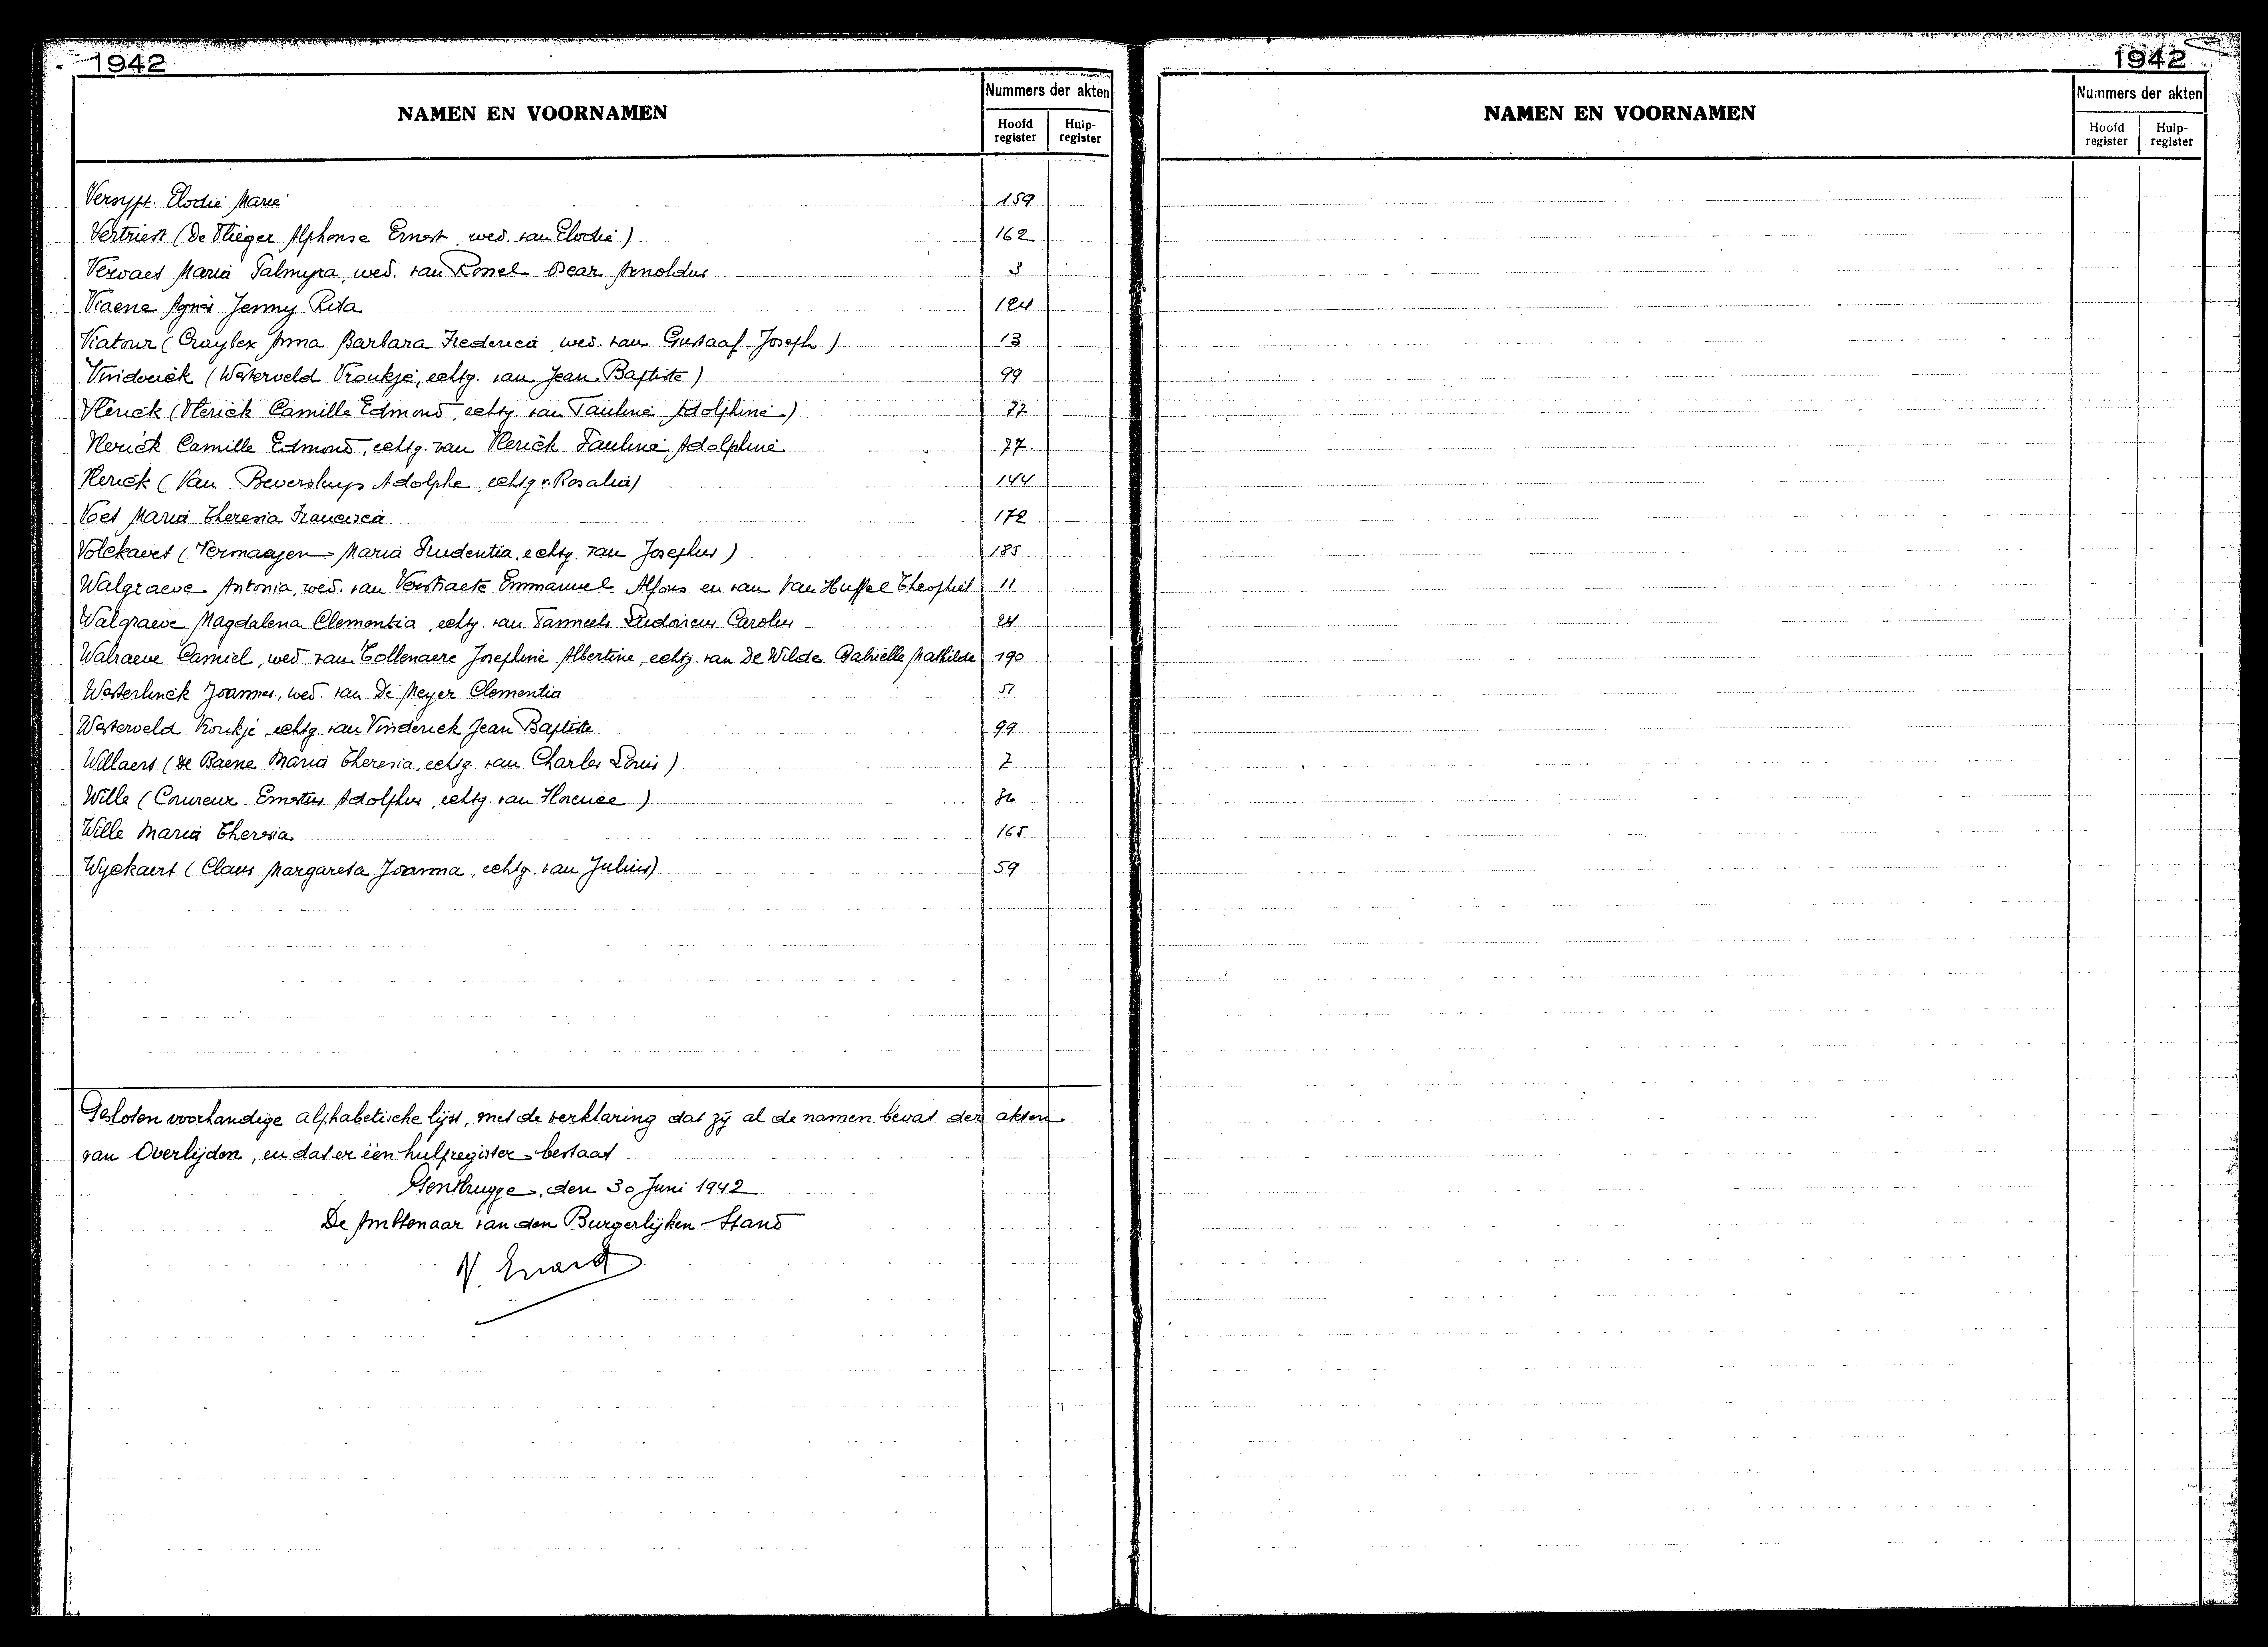 1942
NAMEN EN VOORNAMEN
Nummers der akten
Hoofd register
Hulp-register
Versypt Elodie Marie 159
Vertriest (De Vlieger Alphonse Ernest wed. van Elodie) 162
Vervaet Maria Palmyra, wed. van Arnoldus 3
Viaene Agnès Jenny Rita 124
Viatour ( Anna Barbara Frederica wed. van Gustaaf Joseph) 13
Vinderick (Westerveld Vroukje, echtg. van Jean Baptiste) 99
Vlerick (Vlerick Camille Edmond, echtg. van Pauline Adolphine) 77
Vlerick Camille Edmond, echtg. van Vlerick Pauline Adolphine 77.
Vlerick (Van Adolphe, echtg. v. Rosalie) 144
Voet Maria Theresia Francisca 172
Volckaert (Vermaeyen Maria Prudentia, echtg. van Josephus) 185
Walgraeve Antonia, wed. van Verstraete Emmanuel Alfons en van Van Huffel Theophiel 11
Walgraeve Magdalena Clementia echtg. van Ludovicus Carolus 24
Walraeve Camiel, wed. van Tollenaere Josephine Albertine, echtg. van De Wilde Gabrielle Mathilde 190
Westerlinck Joannes, wed. van De Meyer Clementia 51
Westerveld Vroukje, echtg. van Vinderick Jean Baptiste 99
Willaert (De Baene Maria Theresia, echtg. van Charles Louis) 7
Wille (Coureur Ernestus Adolphus, echtg. van Florence)
Wille Maria Theresia 165
Wyckaert (Claus Margareta Joanna, echtg. van Julius) 59
Gesloten voorhandige alphabetische lijst, met de verklaring dat zij al de namen bevat der akten
van Overlijden, en dat er één hulpregister bestaat
Gentbrugge, den 30 Juni 1942
De Ambtenaar van den Burgerlijken Stand
1942
NAMEN EN VOORNAMEN
Nummers der akten
Hoofd register
Hulp-register